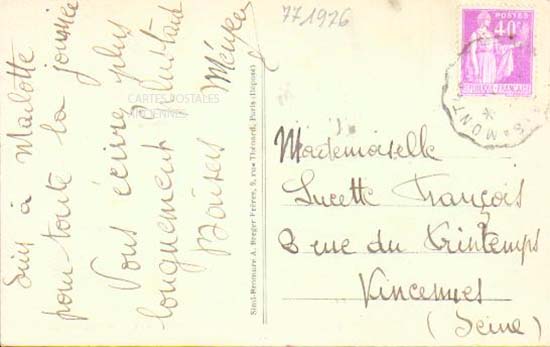 771926
Suis à Marlotte
pour toute la journée
Vous écrirez plus
longuement plus tard
Baisers
CARTES POSTALES
ANCIENNES
Simi-Bromure A. Breger Frères, 9, rue Thénard, Paris (Déposé)
POSTES
40c
RÉPUBLIQUE FRANÇAISE
Mademoiselle
Lucette François
8 rue du Printemps
Vincennes
(Seine)